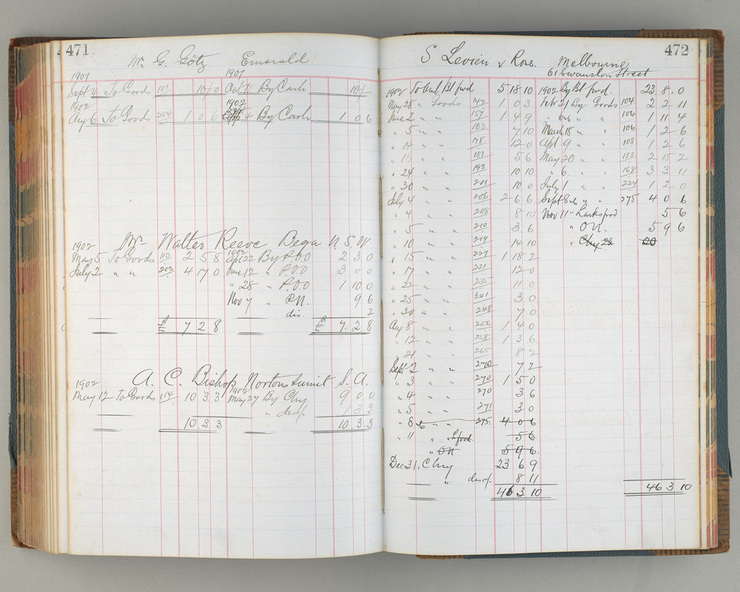 471
Mr. G. Götz Emerald
1901 1901
Sept 2 To Goods 10/0 Oct 7 By Cash 10/-
1902 1902
Aug 6 To Goods 254 1 0 6 4 By Cash 1 0 6
1902 Mr Walter Reeve Bega N.S.W
May 5 To Goods 112 2 5 8 Apr 22 By P.O.O 2 3 0
July 2 " " 203 4 7 0 June 12 " P.O.O 3 0 0
" 28 " P.O.O 1 10 0
Nov 7 " P.N. 9 6
dis. 2
£ 7 2 8 £ 7 2 8
1902 A. C. Bishop Norton Summit S. A.
1902
May 12 To Goods 114 10 3 3 May 27 By Chq 9 0 0
" disc/- 1 3 3
10 3 3 10 3 3
472
S Levien & Rose. Melbourne
61 Swanston Street
1902 To Bal Bt fwd 5 18 10 1902 By Bt fwd 23 8 0
May 28 " Goods 1 0 3 Feb 21 By Goods 104 2 2 11
June 2 " " 157 1 4 9 " " 106 1 11 4
" 5 " " 162 4 10 March 18 " " 106 1 2 6
" " " 12 0 Apl 9 " " 108 1 2 6
" " " 5 6 May 20 " " 2 15 2
" 24 " " 192 10 10 " 6 " " 168 3 3 11
" 30 " " 201 10 0 July 1 " " 224 1 2 0
July 4 " " 206 2 6 6 Sept 8 " 275 4 0 6
" 4 " " 208 8 10 Nov 11 " 5 6
" 5 " " 210 3 6 " O.N. 5 9 6
" 10 " " 219 14 10 " Chq 23 20
" 15 " " 1 18 2
" 17 " " 231 12 0
" 22 " " 11 0
" 25 " " 241 3 0
" " " 7 0
Aug 8 " " 1 4 0
" 12 " " 258 1 3 6
" 21 " " 265 8 2
Sept 2 " " 270 7 2
" 3 " " 270 1 5 0
" 4 " " 270 3 6
" 5 " " 271 3 0
" 8 " 275 4 0 6
" 11 " 5 6
" O.N 5 9 6
Dec 31. Chq 23 6 9
" disc/. 8 11
46 3 10 46 3 10